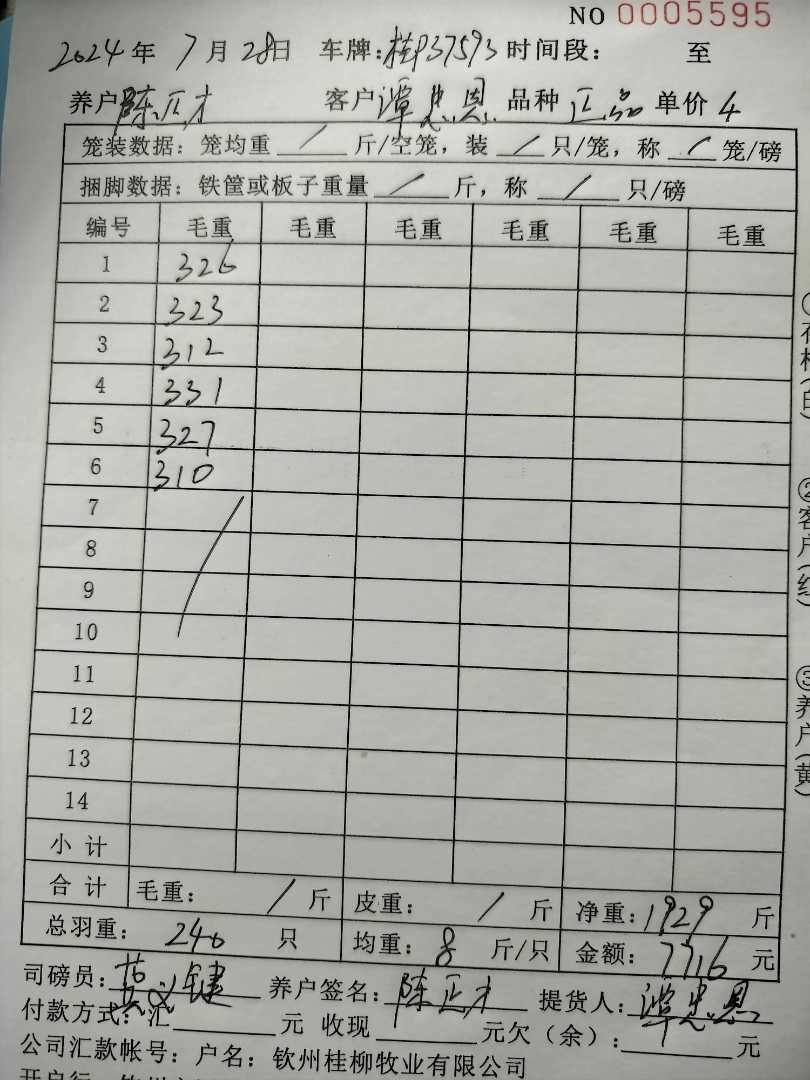 NO 0005595
2024年7月28日 车牌:桂P37593 时间段: 至
养户 陈正才 客户 谭忠恩 品种 正品 单价 4
笼装数据:笼均重 / 斤/空笼,装 / 只/笼,称 / 笼/磅
捆脚数据:铁筐或板子重量 / 斤,称 / 只/磅
编号 毛重 毛重 毛重 毛重 毛重 毛重
1 326
2 323
3 312
4 331
5 327
6 310
7
8
9
10
11
12
13
14
小计
合计 毛重: / 斤 皮重: / 斤 净重:1929 斤
总羽重: 240 只 均重: 8 斤/只 金额: 7716 元
司磅员: 养户签名:陈正才 提货人:谭忠恩
付款方式:汇 元 收现 元欠(余): 元
公司汇款帐号:户名:钦州桂柳牧业有限公司
开户行
②客户(红)
③养户(黄)